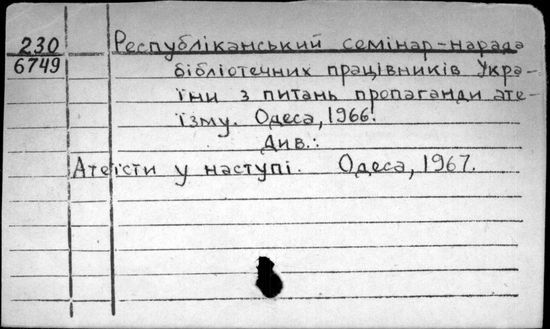 230 Республіканський семінар-нарада
6749 бібліотечних працівників Укра-
їни з питань пропаганди ате-
їзму. Одеса, 1966.
Див.:
Атеїсти у наступі. Одеса, 1967.